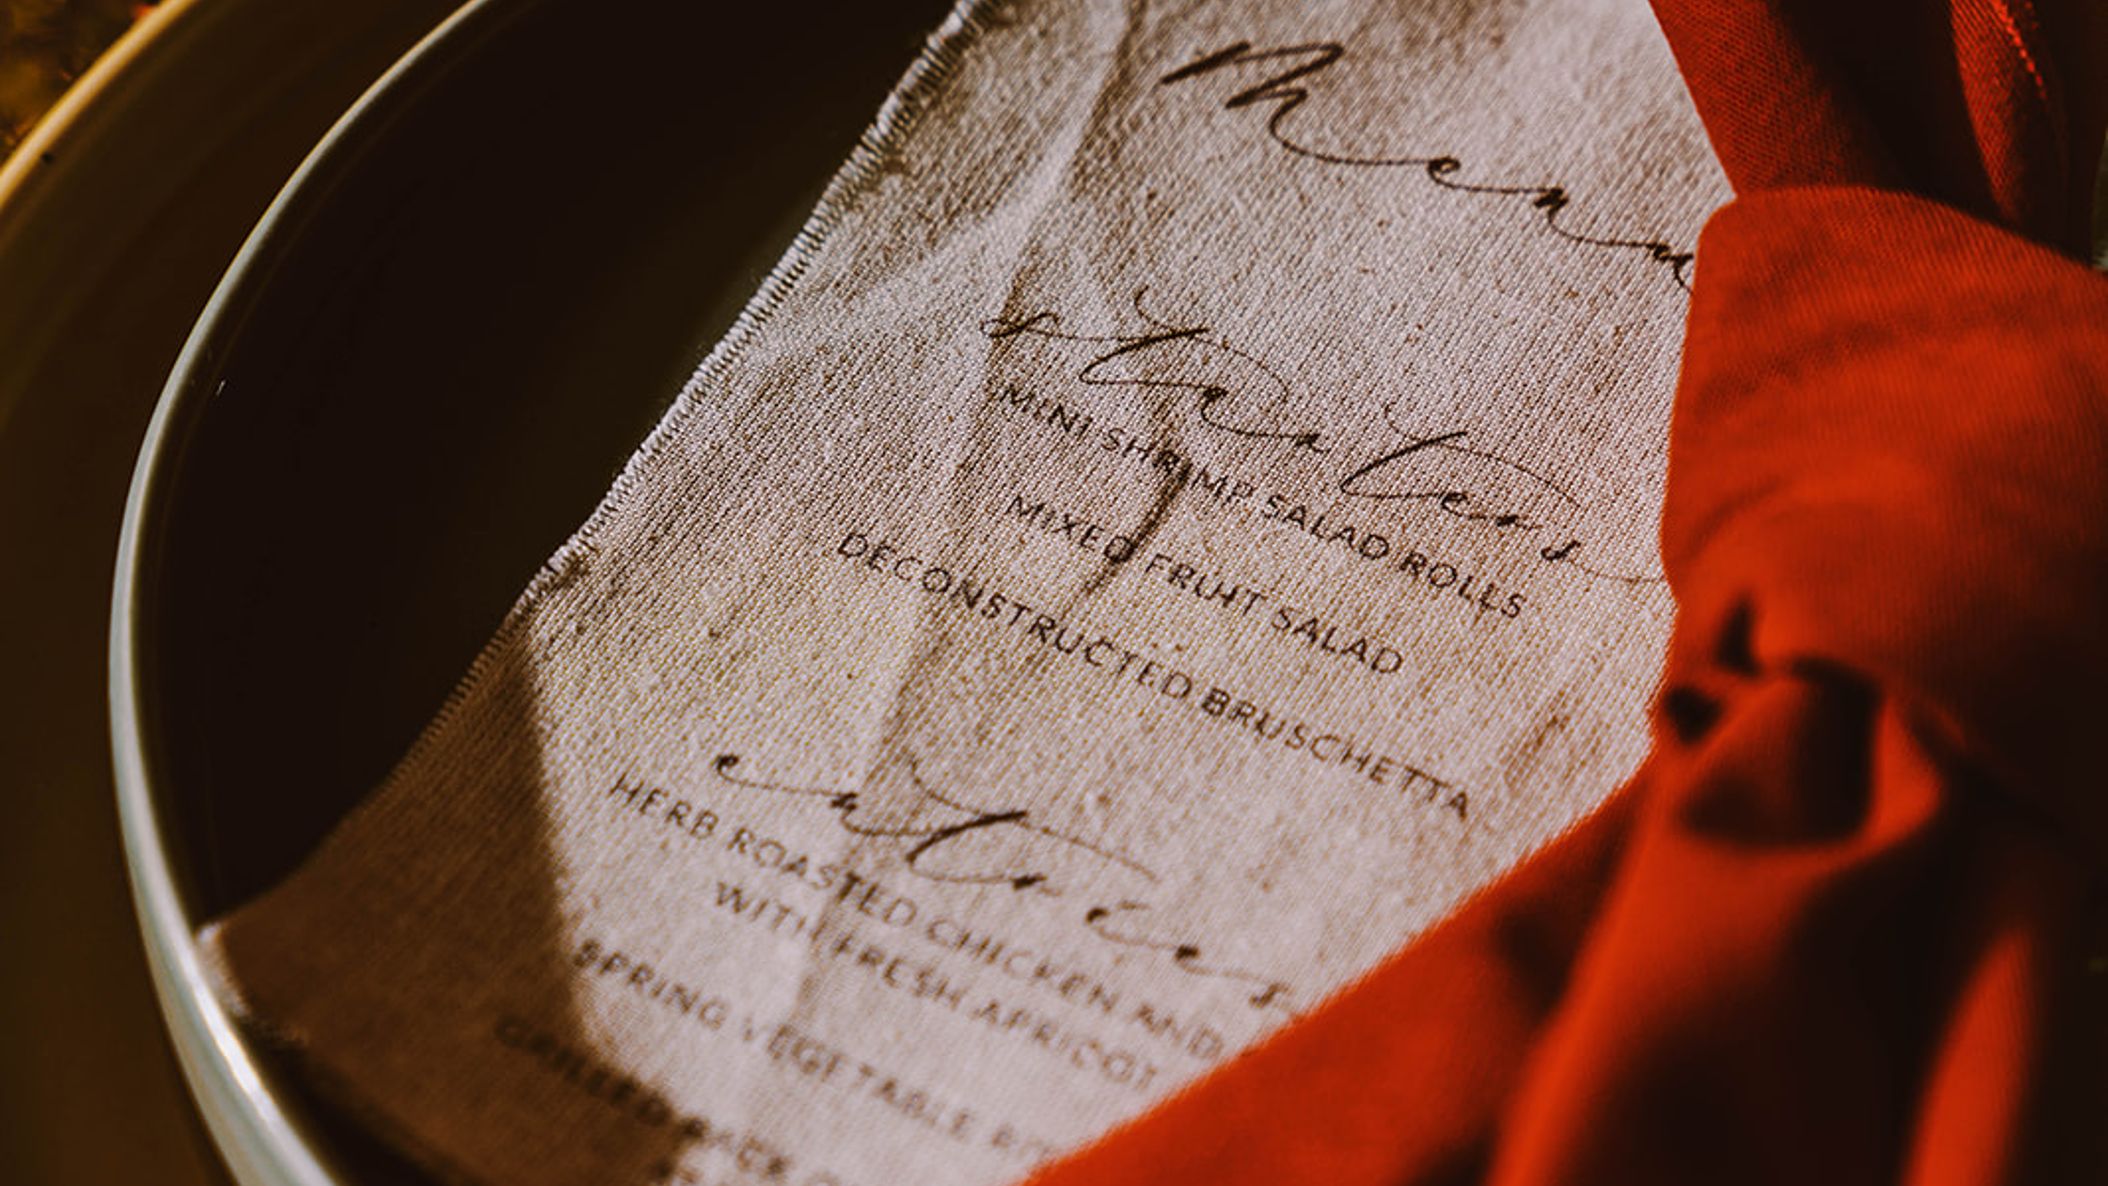 Menu
starters
MINI SHRIMP SALAD ROLLS
MIXED FRUIT SALAD
DECONSTRUCTED BRUSCHETTA
entrees
HERB ROASTED CHICKEN AND
WITH FRESH APRICOT
SPRING VEGETABLE